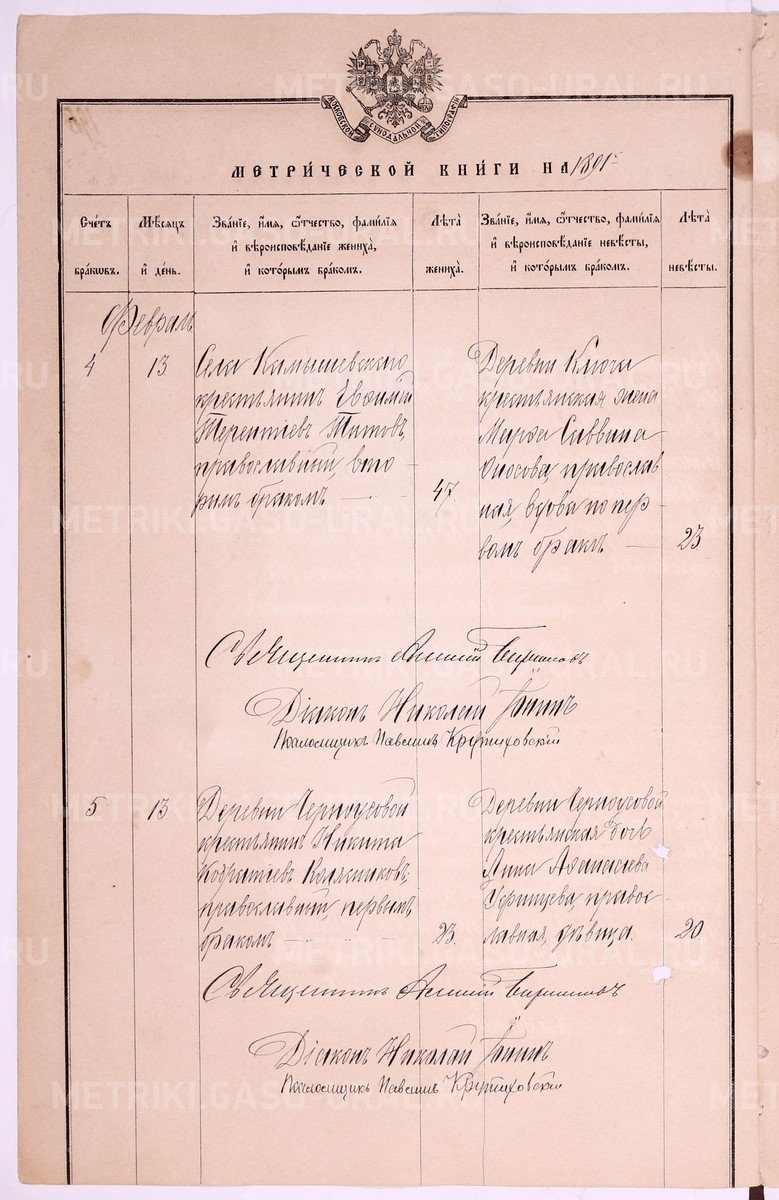 МОСКОВСКОЙ СѴНОДАЛЬНОЙ ТИПОГРАФІИ
МЕТРИ́ЧЕСКОЙ КНИ́ГИ НА 1891 г.
Сче́тъ бра́кѡвъ.
Мѣ́сяцъ и҆ де́нь.
Зва́нїе, и҆́мя, ѻ҆́тчество, фами́лїя и҆ вѣроисповѣ́данїе жениха̀, и҆ кото́рымъ бра́комъ.
Лѣ́та жениха̀.
Зва́нїе, и҆́мя, ѻ҆́тчество, фами́лїя и҆ вѣроисповѣ́данїе невѣ́сты, и҆ кото́рымъ бра́комъ.
Лѣ́та невѣ́сты.
Февраль
4
13
Села Камышевскаго
крестьянинъ Евѳимій
Терентіевъ Титовъ,
православный, вто-
рымъ бракомъ
47
Деревни Ключи
крестьянская жена
Марѳа Саввина
православ
ная, вдова по пер-
вомъ бракѣ
23
Священникъ
Діаконъ Николай
Псаломщикъ Павелъ Крутиховскій
5
13
Деревни Черноусовой
крестьянинъ Никита
Кодратіевъ Колясниковъ,
православный, первымъ
бракомъ
23.
Деревни Черноусовой
крестьянская дочь
Анна Аѳанасіева
правос
лавная, дѣвица.
20
Священникъ
Діаконъ Николай
Псаломщикъ Павелъ Крутиховскій
METRIKI.GASO-URAL.RU